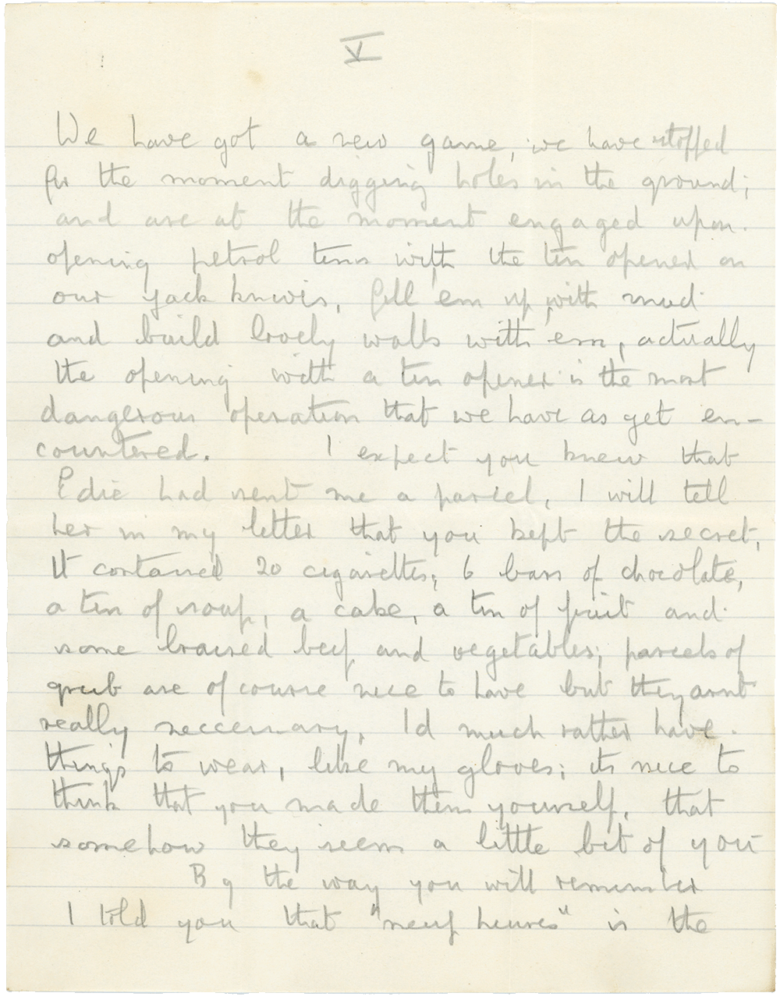 V
We have got a new game, we have stopped
for the moment digging holes in the ground;
and are at the moment engaged upon.
opening petrol tins with the tin opener on
our jack knives, fill 'em up with mud
and build lovely walls with em, actually
the opening with a tin opener is the most
dangerous operation that we have as yet en-
countered. I expect you knew that
Edie had sent me a parcel, I will tell
her in my letter that you kept the secret,
It contained 20 cigarettes, 6 bars of chocolate,
a tin of soup, a cake, a tin of fruit and
some braised beef and vegetables; parcels of
grub are of course nice to have but they arnt
really neccessary, I'd much rather have.
things to wear, like my gloves; its nice to
think that you made them yourself, that
somehow they seem a little bit of you
By the way you will remember
I told you that "neuf heures" is the